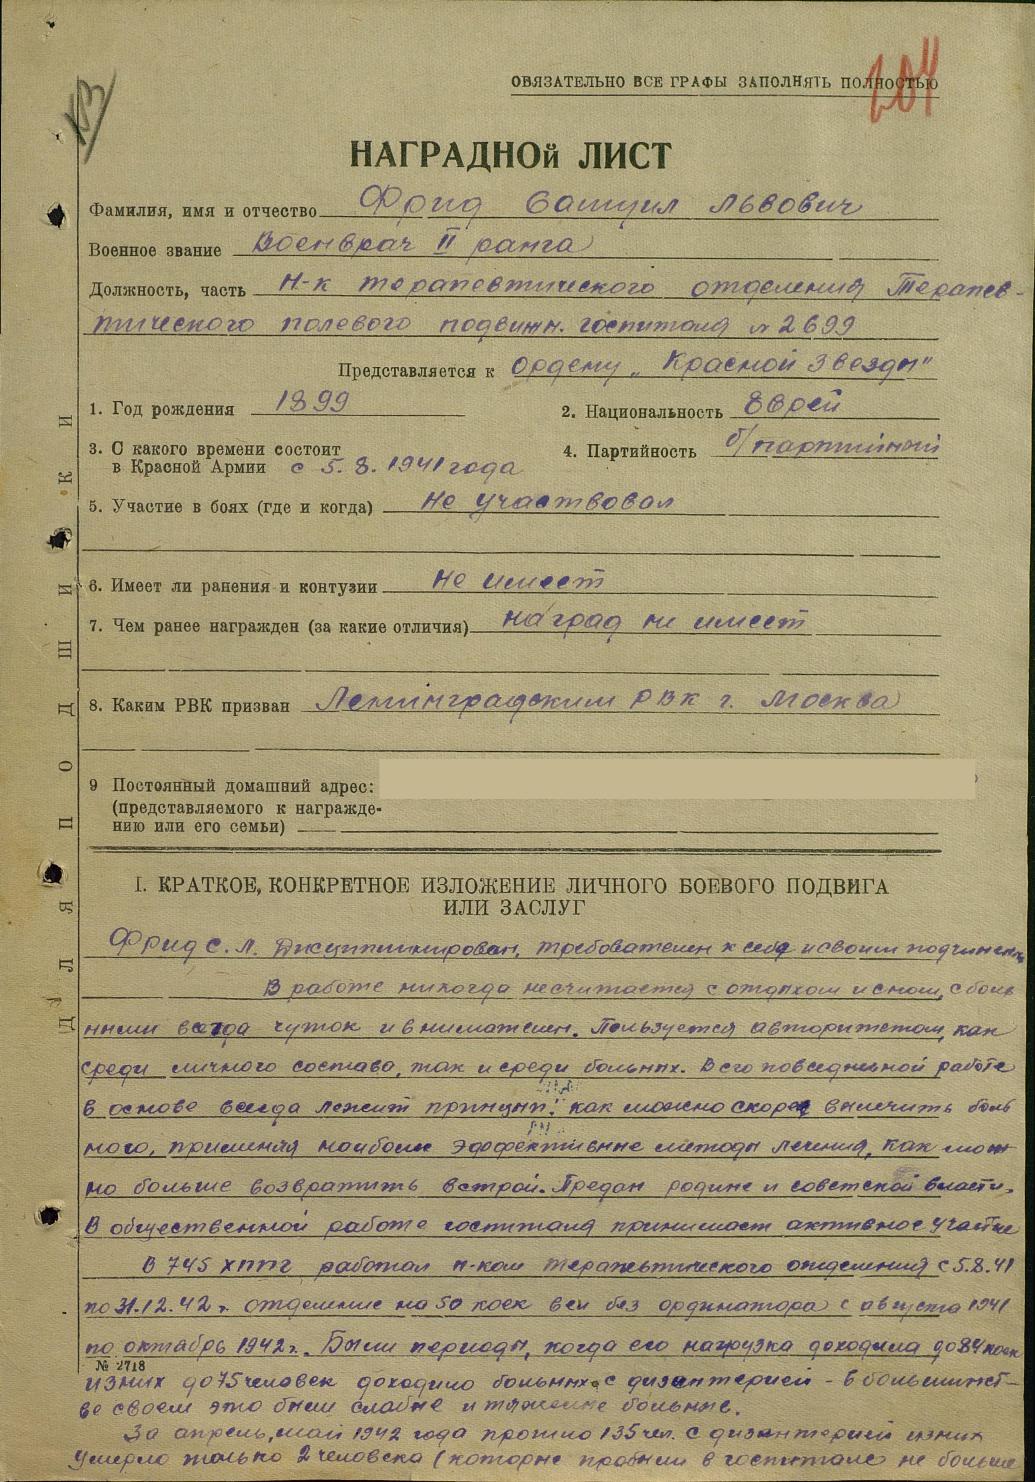 204
ОБЯЗАТЕЛЬНО ВСЕ ГРАФЫ ЗАПОЛНЯТЬ ПОЛНОСТЬЮ
НАГРАДНОй ЛИСТ
Фамилия, имя и отчество Фрид Самуил Львович
Военное звание Военврач II ранга
Должность, часть Н-к терапевтического отделения Терапев-
тического полевого подвижн. госпиталя № 2699
Представляется к ордену „Красной Звезды"
1. Год рождения 1899
2. Национальность Еврей
3. С какого времени состоит
в Красной Армии с 5.8.1941 года
4. Партийность б/партийный
5. Участие в боях (где и когда) не участвовал
6. Имеет ли ранения и контузии не имеет
7. Чем ранее награжден (за какие отличия) наград не имеет
8. Каким РВК призван Ленинградским РВК г. Москва
9 Постоянный домашний адрес:
(представляемого к награжде-
нию или его семьи)
ДЛЯ ПОДШИВКИ
I. КРАТКОЕ, КОНКРЕТНОЕ ИЗЛОЖЕНИЕ ЛИЧНОГО БОЕВОГО ПОДВИГА
ИЛИ ЗАСЛУГ
Фрид С. Л. Дисциплинирован, требователен к себе и своим подчиненн
В работе никогда не считается с отдыхом и сном, с боль
ными всегда чуток и внимателен. Пользуется авторитетом, как
среди личного состава, так и среди больных. В его повседневной работе
в основе всегда лежит принцип: как можно скорее вылечить боль
ного, применяя наиболее эффективные методы лечения, как мож
но больше возвратить в строй. Предан родине и советской власти.
В общественной работе госпиталя принимает активное участие
В 745 ХППГ работал н-ком терапевтического отделения с 5.8.41
по 31.12.42 г. отделение на 50 коек вел без ординатора с августа 1941
по октябрь 1942 г. Были периоды, когда его нагрузка доходила до 84 коек
№ 2718
из них до 75 человек доходило больных с дизентерией - в большинст-
ве своем это были слабые и тяжелые больные.
За апрель, май 1942 года прошло 135 чел. с дизентерией из них
умерло только 2 человека (которые пробыли в госпитале не больше